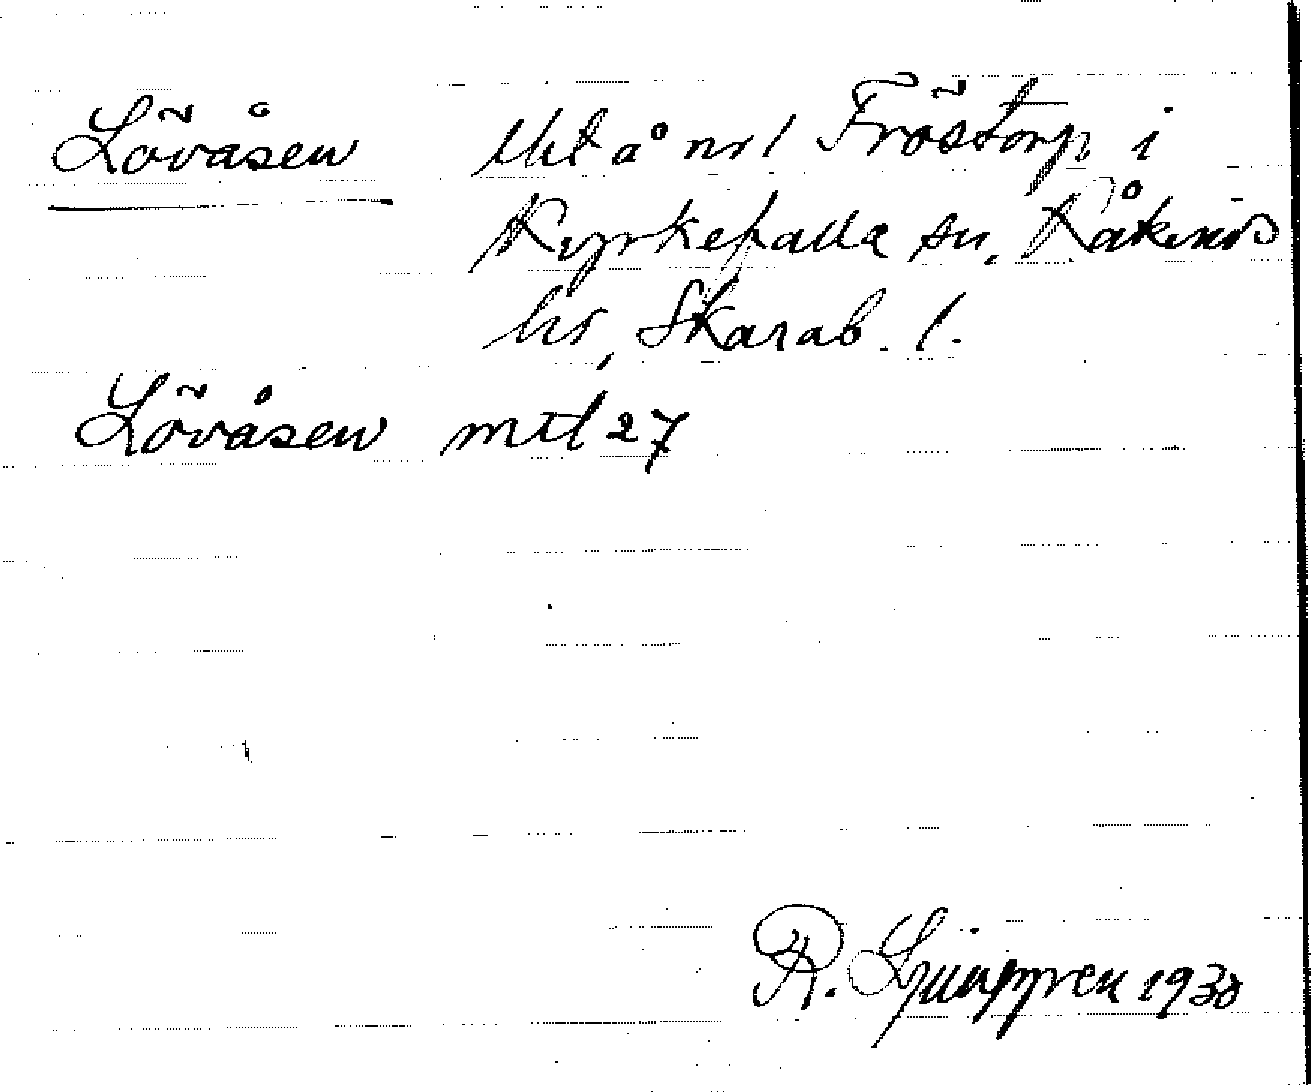 Lövåsen Mt å nr 1 Fröstorp i
Kyrkefalla sn. Kåkinds
hd, Skarab. l.
Lövåsen mtl 27
R. Ljunggren 1930